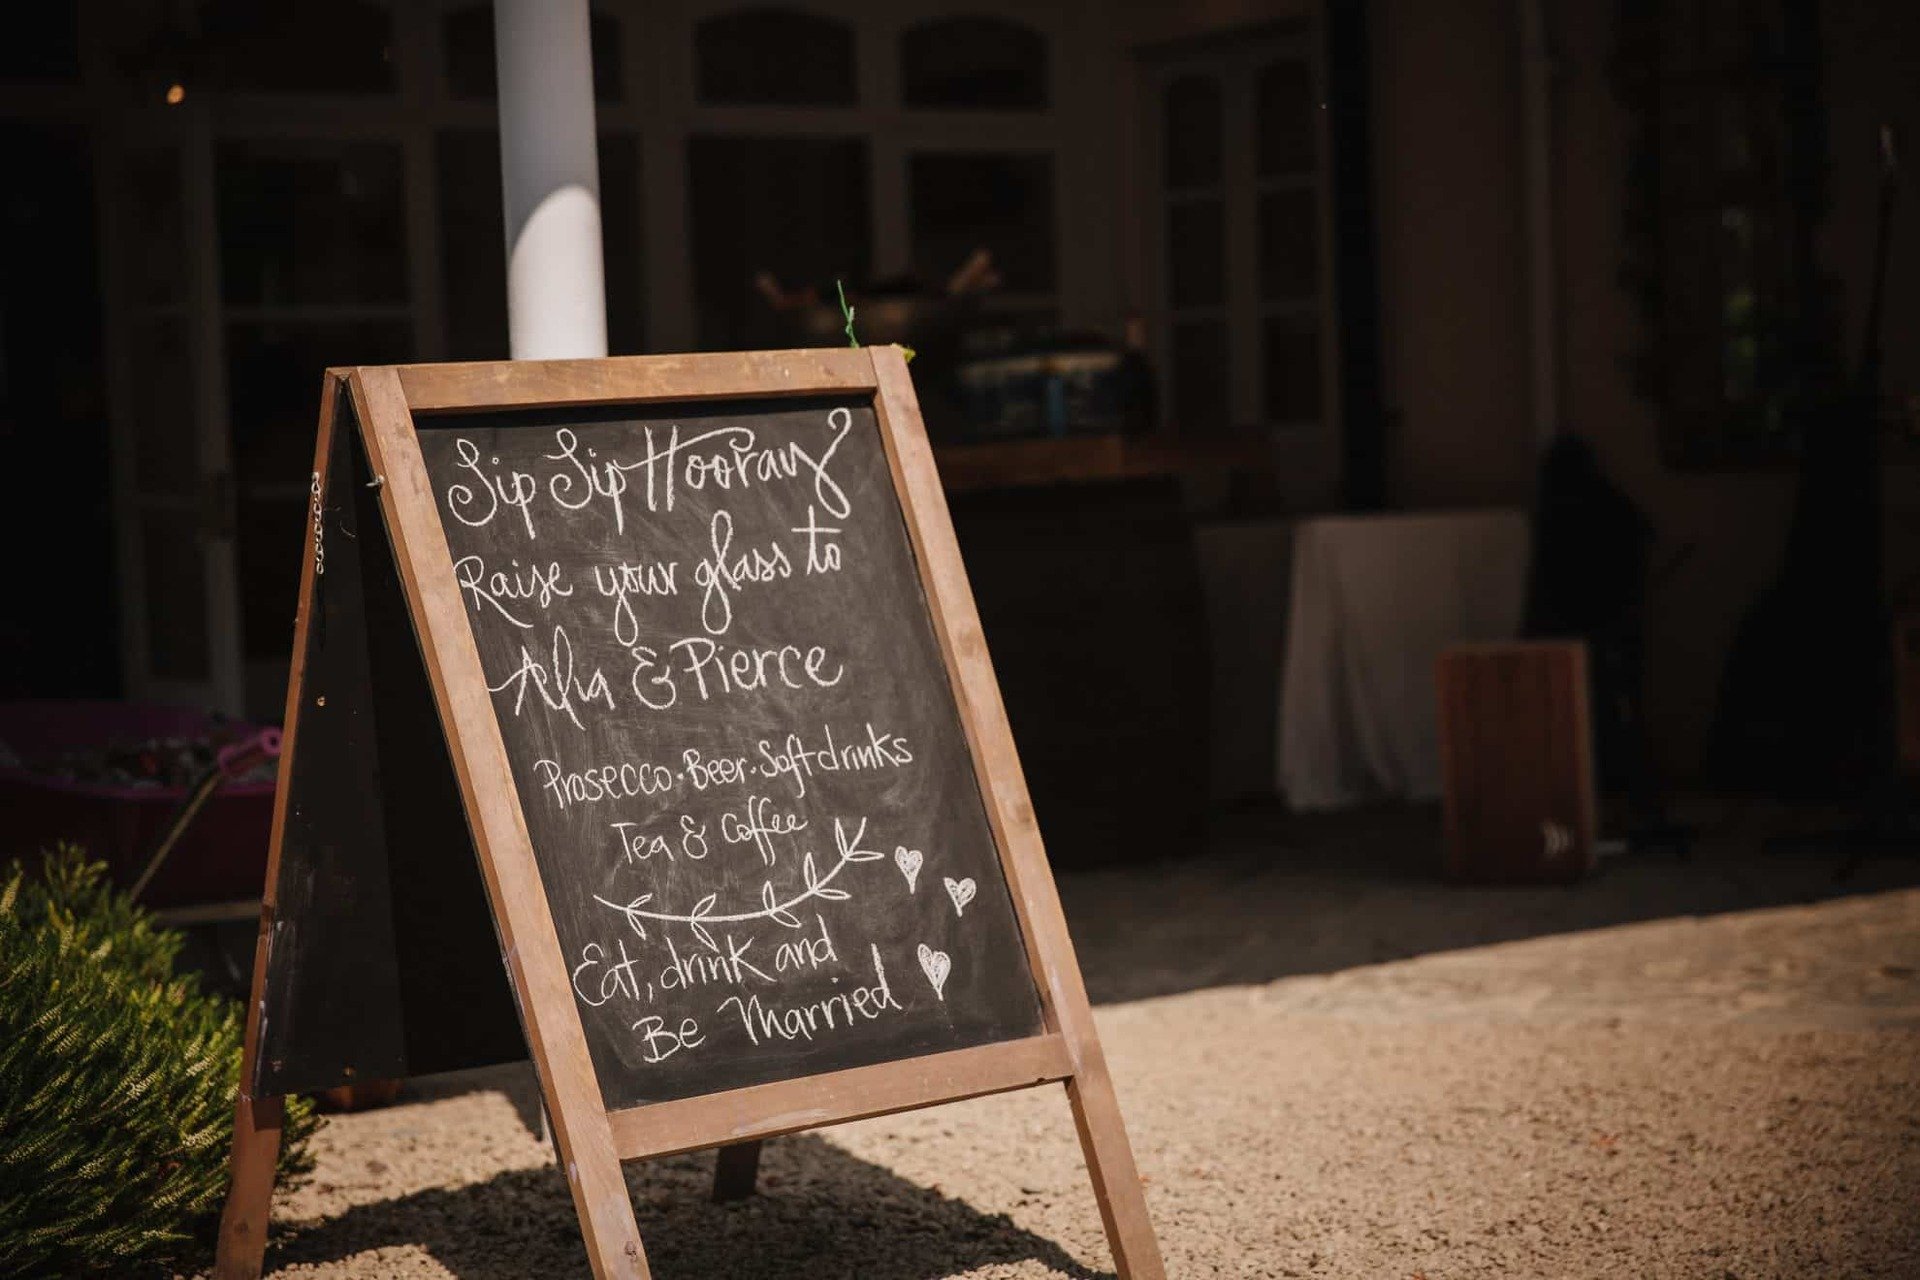 Sip Sip Hooray
Raise your glass to
& Pierce
Prosecco · Beer · Soft drinks
Tea & Coffee
Eat, drink and
Be Married